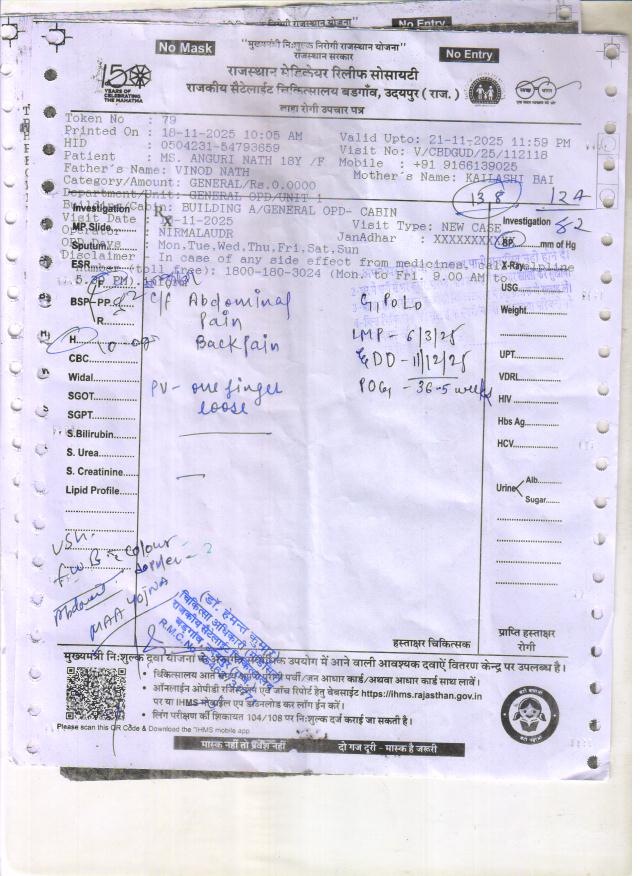 No Entry
No Mask
"मुख्यमंत्री निःशुल्क निरोगी राजस्थान योजना"
राजस्थान सरकार
No Entry
150
YEARS OF
CELEBRATING
THE MAHATMA
राजस्थान मेडिकेयर रिलीफ सोसायटी
राजकीय सैटेलाईट चिकित्सालय बड़गाँव, उदयपुर ( राज. )
बाह्य रोगी उपचार पत्र
Token No : 79
Printed On : 18-11-2025 10:05 AM Valid Upto: 21-11-2025 11:59 PM
HID : 0504231-54793659 Visit No: V/CBDGUD/25/112118
Patient : MS. ANGURI NATH 18Y /F Mobile : +91 9166139025
Father's Name: VINOD NATH Mother's Name: KAILASHI BAI
Category/Amount: GENERAL/Rs.0.0000
Department/Unit: GENERAL OPD/UNIT 1
13.8 124
82
Building/Cabin: BUILDING A/GENERAL OPD- CABIN
Visit Date : -11-2025 Visit Type: NEW CASE
Operator : NIRMALAUDR JanAdhar : XXXXXXXX
OPD Days : Mon,Tue,Wed,Thu,Fri,Sat,Sun
Disclaimer : In case of any side effect from medicines, call helpline
number (toll free): 1800-180-3024 (Mon. to Fri. 9.00 AM to
5. PM)
Investigation
MP Slide
Sputum
ESR
F.
BSL-PP
R.
H
CBC
Widal
SGOT
SGPT
S.Bilirubin
S. Urea
S. Creatinine
Lipid Profile
Rx
C/f Abdominal
Pain
Backpain
PV- one finger
loose
G1P0L0
LMP - 6/3/25
EDD - 11/12/25
POG - 36-5 weeks
Investigation
BP mm of Hg
X-Ray
USG
Weight
UPT
VDRL
HIV
Hbs Ag
HCV
Urine Alb.
Sugar
USG.
FWB c colour
doppler
MAA YOJNA
(डॉ. हेमन्त कुमार)
चिकित्सा अधिकारी
राजकीय सैटेलाईट चिकित्सालय
बड़गाँव
R.M.C. No.
हस्ताक्षर चिकित्सक
प्राप्ति हस्ताक्षर
रोगी
मुख्यमंत्री निःशुल्क दवा योजना के उपयोग में आने वाली आवश्यक दवाऐं वितरण केन्द्र पर उपलब्ध है।
• चिकित्सालय आते पर्ची/जन आधार कार्ड/अथवा आधार कार्ड साथ लावें।
• ऑनलाईन ओपीडी एवं जाँच रिपोर्ट हेतु वेबसाईट https://ihms.rajasthan.gov.in
पर या IHMS मोबाईल एप डाउनलोड कर लॉग ईन करें।
• लिंग परीक्षण की शिकायत 104/108 पर निःशुल्क दर्ज कराई जा सकती है।
Please scan this QR Code & Download the "IHMS mobile app
मास्क नहीं तो प्रवेश नहीं दो गज दूरी - मास्क है जरूरी